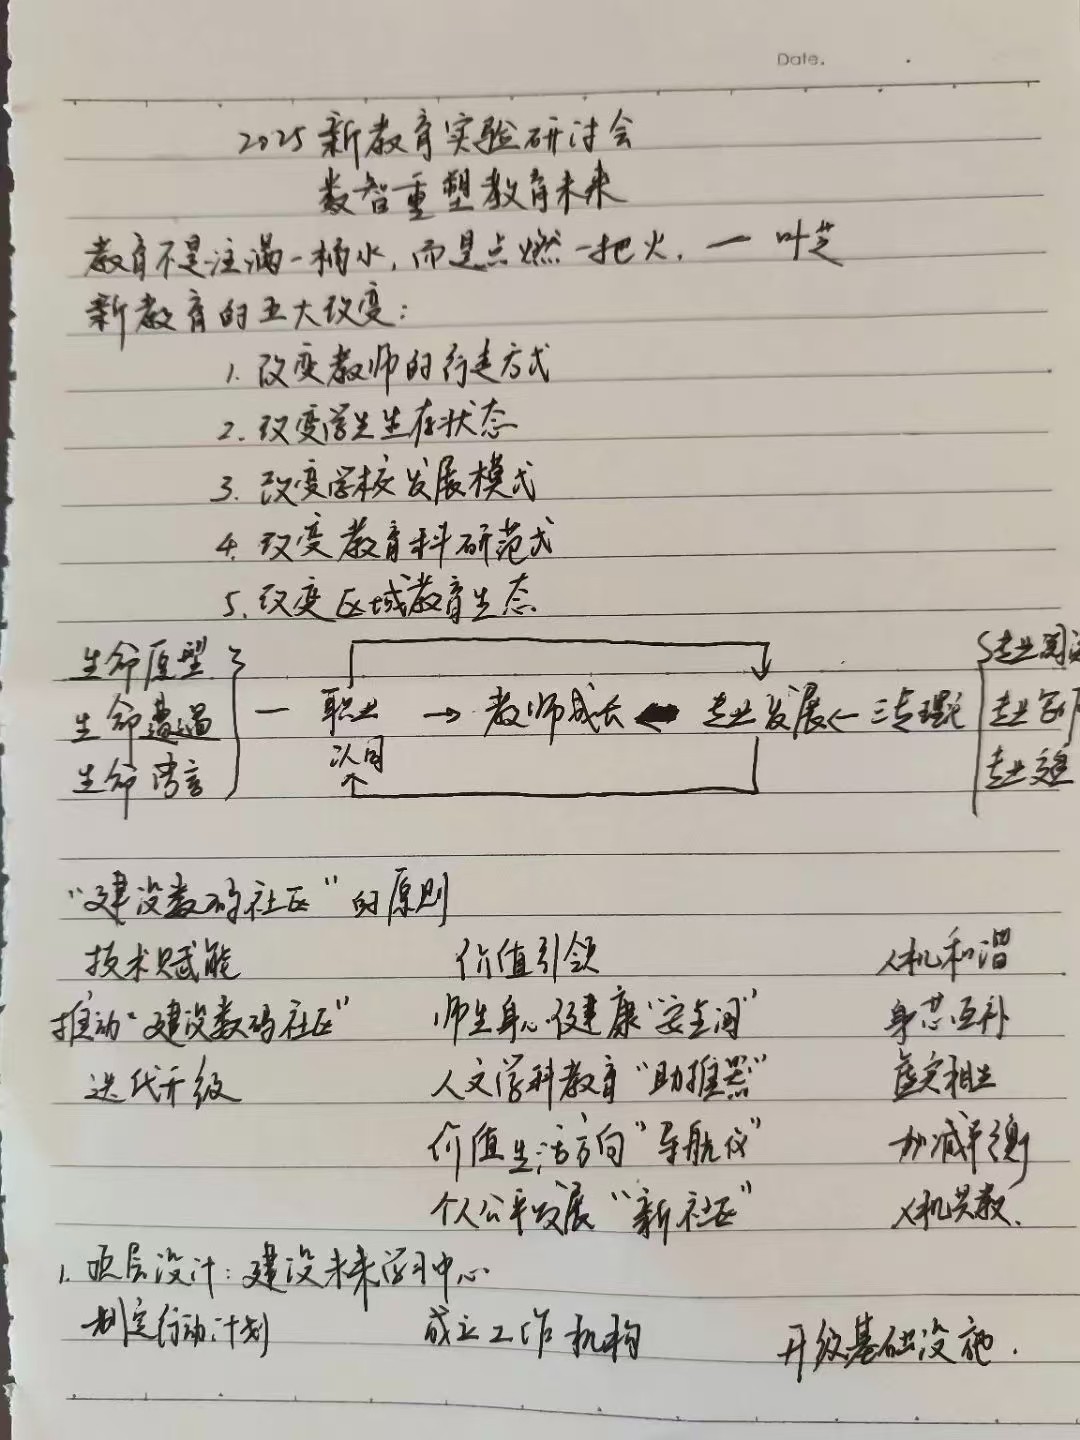 Date.
2025新教育实验研讨会
数智重塑教育未来
教育不是注满一桶水,而是点燃一把火. — 叶芝
新教育的五大改变:
1. 改变教师的行走方式
2. 改变学生生存状态
3. 改变学校发展模式
4. 改变教育科研范式
5. 改变区域教育生态
生命原型
生命遭遇
生命语言
职业认同 → 教师成长 ← 专业发展 ← 三专理论
专业阅
专业写
专业交
“建设数码社区”的原则
技术赋能 价值引领 人机和谐
推动“建设数码社区” 师生身心健康“安全阀” 身芯互补
迭代升级 人文学科教育“助推器” 虚实相生
价值生活方向“导航仪” 加减平衡
个人公平发展“新社区” 人机共教.
1. 顶层设计:建设未来学习中心
制定行动计划 成立工作机构 升级基础设施.